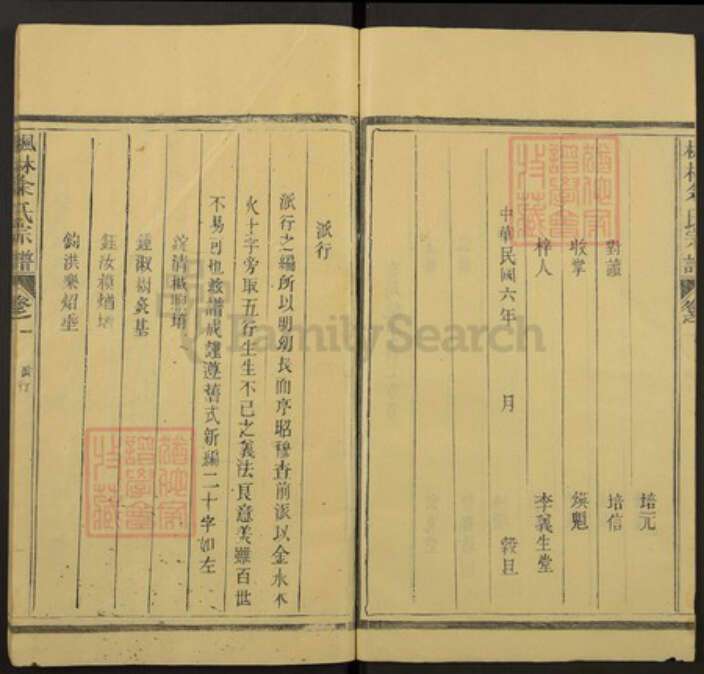 培元
對讀 培信
收掌 煥魁
梓人 李義生堂
中華民國六年 月 穀旦
派行
派行之編所以明幼長而序昭穆查前派以金水木
火土字旁取五行生生不已之義法良意美雖百世
不易可也茲譜成謹遵舊式新編二十字如左
清 培
鍾淑樹炎基
鈺汝模
鈞洪業炤垂
楓林余氏宗譜 卷之一 派行
FamilySearch